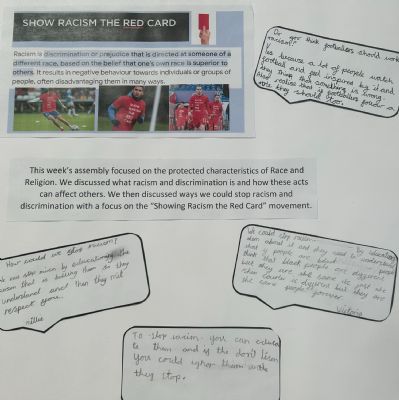 SHOW RACISM THE RED CARD
Racism is discrimination or prejudice that is directed at someone of a
different race, based on the belief that one's own race is superior to
others. It results in negative behaviour towards individuals or groups of
people, often disadvantaging them in many ways.
Do you think footballers should
racism?
Yes because a lot of people watch
football and feel inspired by it and
they think that something is wrong.
realise that if footballers
they should too.
This week's assembly focused on the protected characteristics of Race and
Religion. We discussed what racism and discrimination is and how these acts
can affect others. We then discussed ways we could stop racism and
discrimination with a focus on the "Showing Racism the Red Card" movement.
How could we stop racism?
We can stop racism by educating the
is them so they
understand and then they will
respect you.
We could stop racism by educating
them about it and they need to understand
that if people are
think that black people are different
but they are the same its just
colour is different but they are
the same people forever
Victoria
To stop racism you can educa
te them and if the don't listen
you could ignor them until
they stop.